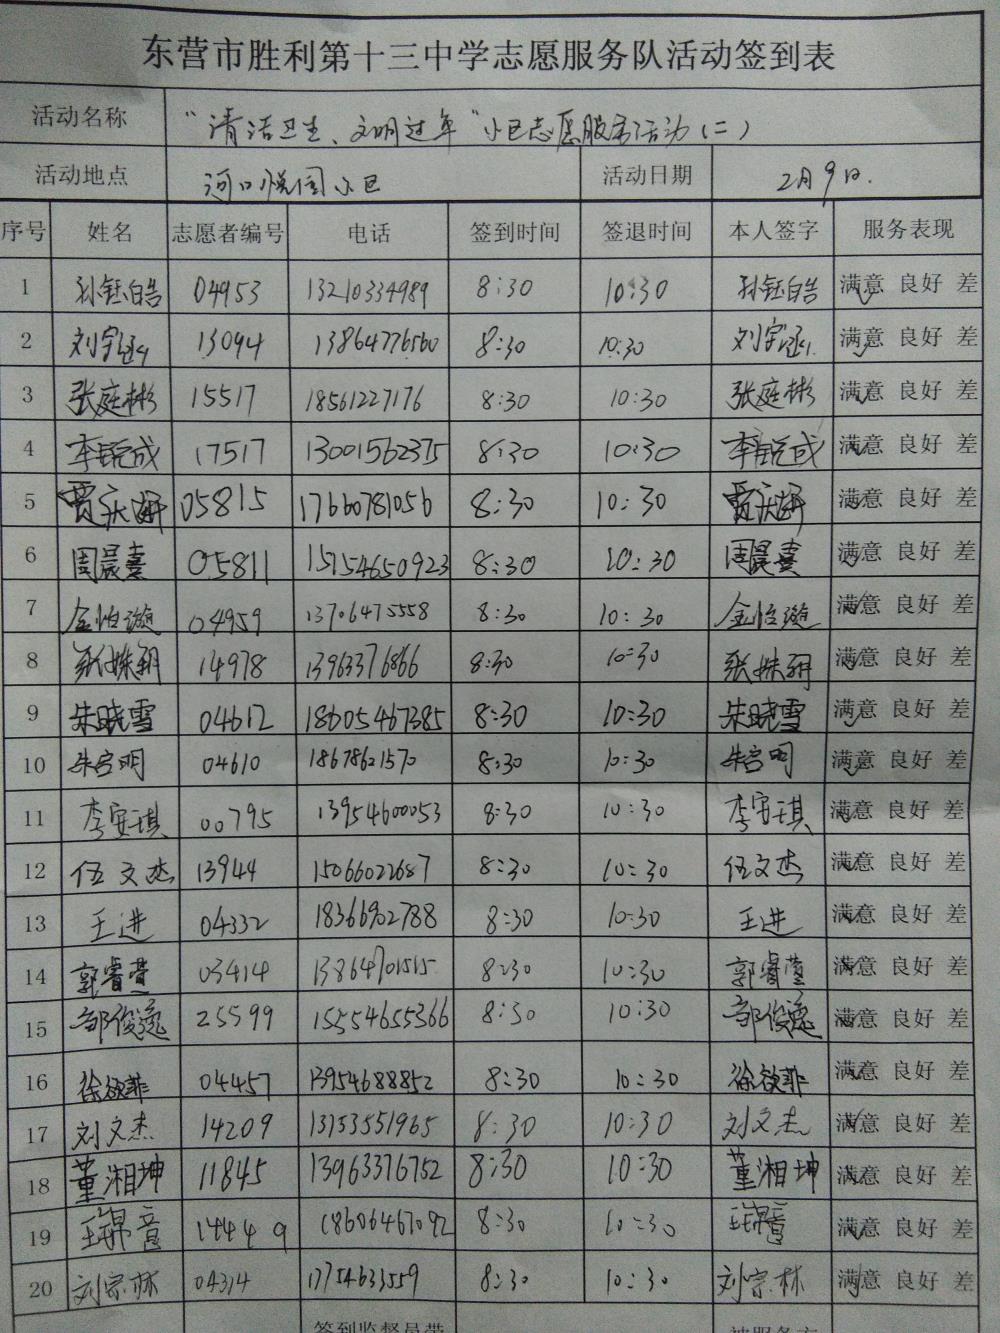 东营市胜利第十三中学志愿服务队活动签到表
活动名称 “清洁卫生、文明过年”小区志愿服务活动(二)
活动地点 河口悦园小区 活动日期 2月9日.
序号 姓名 志愿者编号 电话 签到时间 签退时间 本人签字 服务表现
1 孙钰皓 04953 13210334989 8:30 10:30 孙钰皓 满意 良好 差
2 刘宇涵 13094 13864776560 8:30 10:30 刘宇涵 满意 良好 差
3 张庭彬 15517 18561227176 8:30 10:30 张庭彬 满意 良好 差
4 李锐成 17517 13001562375 8:30 10:30 李锐成 满意 良好 差
5 贾庆妍 05815 17660781056 8:30 10:30 贾庆妍 满意 良好 差
6 周晨熹 05811 15154650923 8:30 10:30 周晨熹 满意 良好 差
7 金怡漩 04959 13706475558 8:30 10:30 金怡漩 满意 良好 差
8 张姝玥 14978 13963376866 8:30 10:30 张姝玥 满意 良好 差
9 朱晓雪 04612 18605467385 8:30 10:30 朱晓雪 满意 良好 差
10 朱启明 04610 18678621570 8:30 10:30 朱启明 满意 良好 差
11 李安琪 00795 13954600053 8:30 10:30 李安琪 满意 良好 差
12 伍文杰 13944 15066022687 8:30 10:30 伍文杰 满意 良好 差
13 王进 04332 18366902788 8:30 10:30 王进 满意 良好 差
14 郭睿萱 03414 13864701515 8:30 10:30 郭睿萱 满意 良好 差
15 邹俊逸 25599 15554655366 8:30 10:30 邹俊逸 满意 良好 差
16 徐欲菲 04457 13954688852 8:30 10:30 徐欲菲 满意 良好 差
17 刘文杰 14209 13153551965 8:30 10:30 刘文杰 满意 良好 差
18 董湘坤 11845 13963376752 8:30 10:30 董湘坤 满意 良好 差
19 14449 18606467092 8:30 10:30 满意 良好 差
20 刘宗林 04314 17754633559 8:30 10:30 刘宗林 满意 良好 差
签到监督员带 被服务方